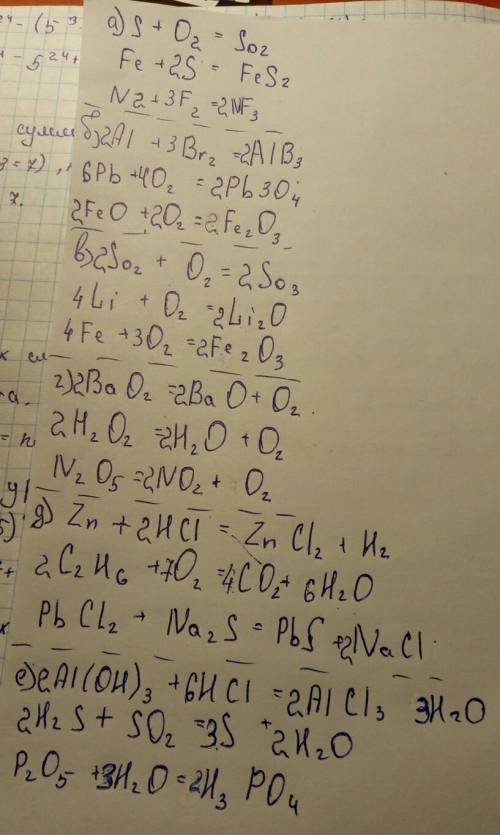 а) S + O2 = SO2
Fe + 2S = FeS2
N2 + 3F2 = 2NF3
сумм
б) 2Al + 3Br2 = 2AlB3
6Pb + 4O2 = 2Pb3O4
2FeO + 2O2 = 2Fe2O3
в) 2SO2 + O2 = 2SO3
4Li + O2 = 2Li2O
4Fe + 3O2 = 2Fe2O3
г) 2BaO2 = 2BaO + O2.
2H2O2 = 2H2O + O2
N2O5 = 2NO2 + O2
д) Zn + 2HCl = ZnCl2 + H2
2C2H6 + 7O2 = 4CO2 + 6H2O
PbCl2 + Na2S = PbS + 2NaCl.
е) 2Al(OH)3 + 6HCl = 2AlCl3 3H2O
2H2S + SO2 = 3S + 2H2O
P2O5 + 3H2O = 2H3PO4